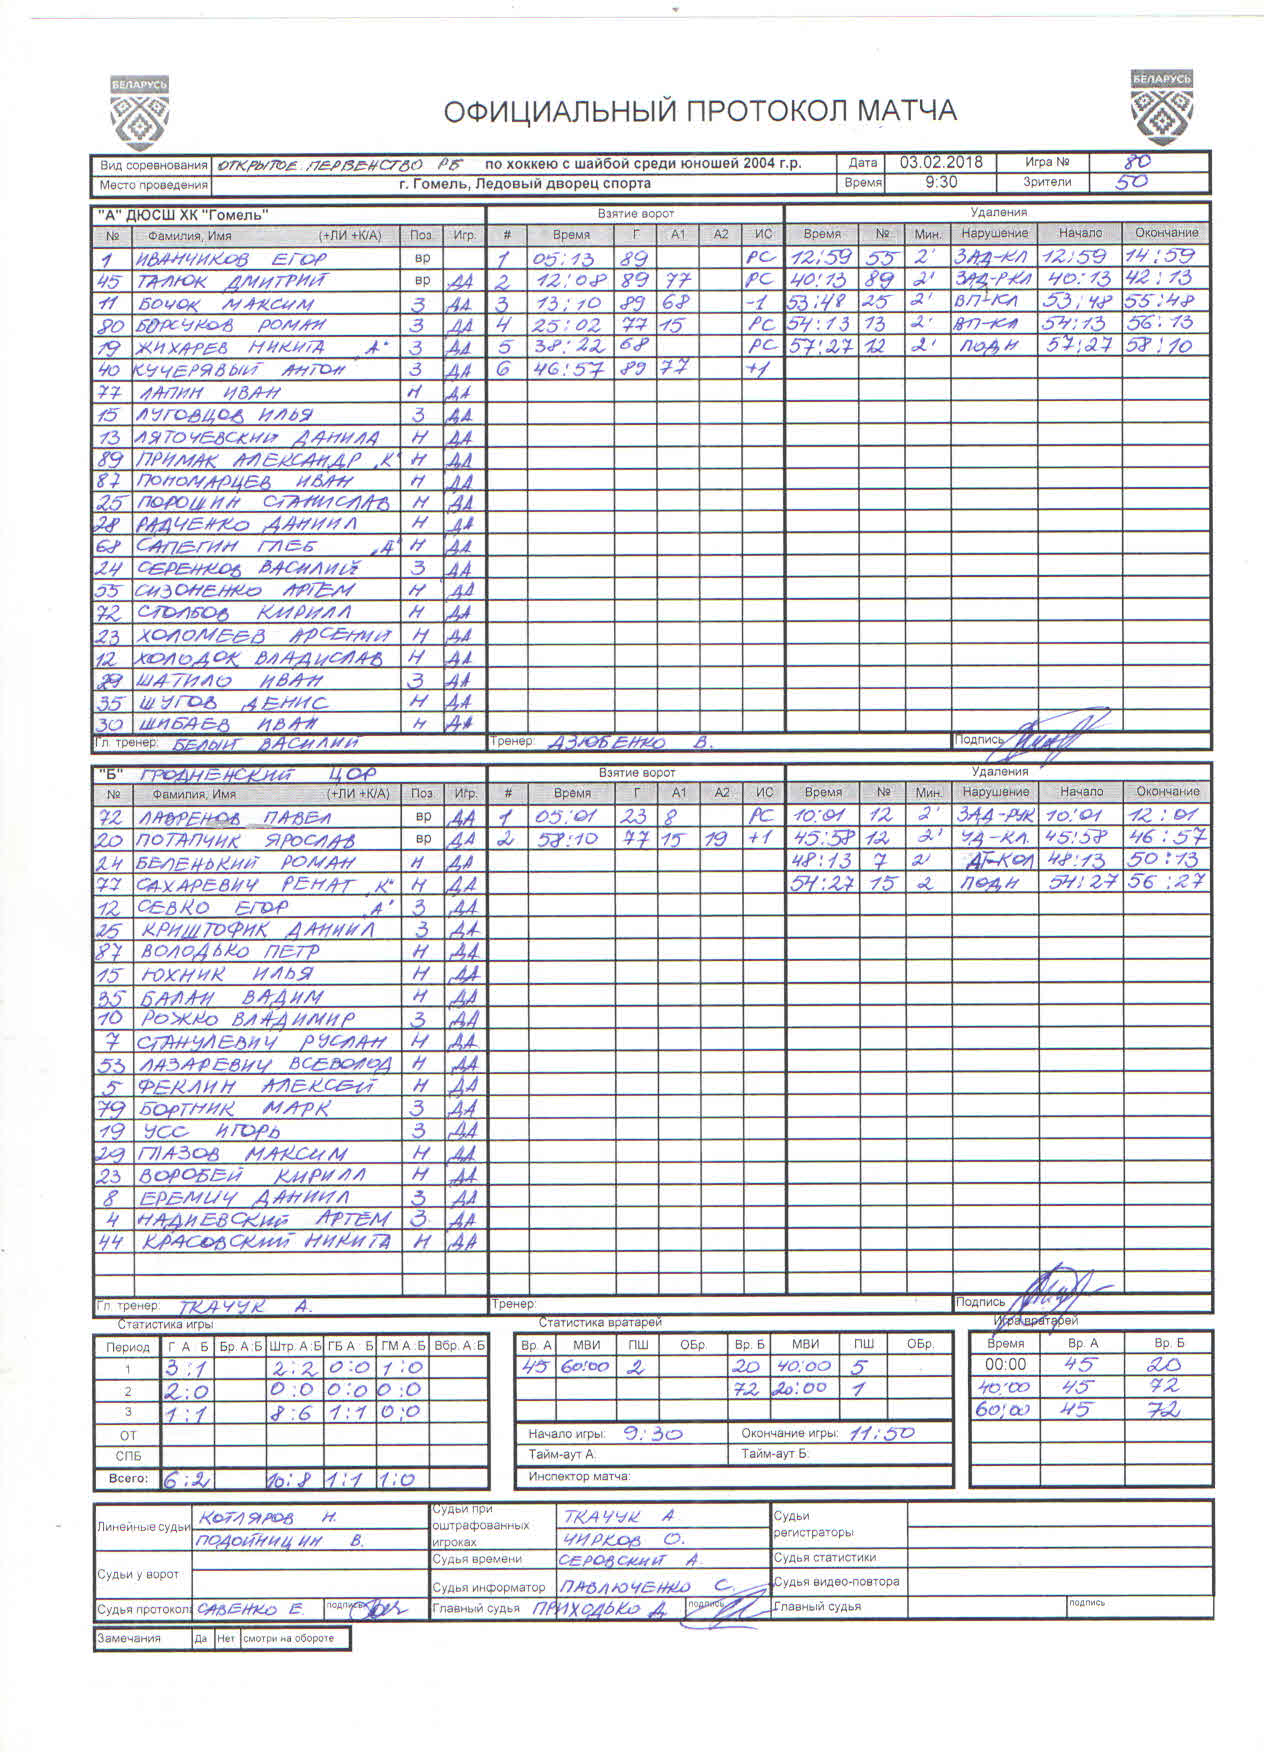 БЕЛАРУСЬ БЕЛАРУСЬ
ОФИЦИАЛЬНЫЙ ПРОТОКОЛ МАТЧА
Вид соревнования ОТКРЫТОЕ ПЕРВЕНСТВО РБ по хоккею с шайбой среди юношей 2004 г.р. Дата 03.02.2018 Игра № 80
Место проведения г. Гомель, Ледовый дворец спорта Время 9:30 Зрители 50
"А" ДЮСШ ХК "Гомель" Взятие ворот Удаления
№ Фамилия, Имя (+ЛИ +К/А) Поз Игр. # Время Г А1 А2 ИС Время № Мин. Нарушение Начало Окончание
1 ИВАНЧИКОВ ЕГОР вр 1 05:13 89 РС 12:59 55 2' ЗАД-КЛ 12:59 14:59
45 ТАЛЮК ДМИТРИЙ вр ДА 2 12:08 89 77 РС 40:13 89 2' ЗАД-РКЛ 40:13 42:13
11 БОЧОК МАКСИМ З ДА 3 13:10 89 68 -1 53:48 25 2' ВП-КЛ 53:48 55:48
80 БОРСУКОВ РОМАН З ДА 4 25:02 77 15 РС 54:13 13 2' ВП-КЛ 54:13 56:13
19 ЖИХАРЕВ НИКИТА „А" З ДА 5 38:22 68 РС 57:27 12 2' ПОДН 57:27 58:10
40 КУЧЕРЯВЫЙ АНТОН З ДА 6 46:57 89 77 +1
77 ЛАПИН ИВАН Н ДА
15 ЛУГОВЦОВ ИЛЬЯ З ДА
13 ЛЯТОЧЕВСКИЙ ДАНИЛА Н ДА
89 ПРИМАК АЛЕКСАНДР „К" Н ДА
87 ПОНОМАРЦЕВ ИВАН Н ДА
25 ПОРОШИН СТАНИСЛАВ Н ДА
28 РАДЧЕНКО ДАНИИЛ Н ДА
68 САПЕГИН ГЛЕБ „А" Н ДА
24 СЕРЕНКОВ ВАСИЛИЙ З ДА
55 СИЗОНЕНКО АРТЕМ Н ДА
72 СТОЛБОВ КИРИЛЛ Н ДА
23 ХОЛОМЕЕВ АРСЕНИЙ Н ДА
12 ХОЛОДОК ВЛАДИСЛАВ Н ДА
29 ШАТИЛО ИВАН З ДА
35 ШУГОВ ДЕНИС Н ДА
30 ШИБАЕВ ИВАН Н ДА
Гл. тренер: БЕЛЫЙ ВАСИЛИЙ Тренер: ДЗЮБЕНКО В. Подпись
"Б" ГРОДНЕНСКИЙ ЦОР Взятие ворот Удаления
№ Фамилия, Имя (+ЛИ +К/А) Поз Игр. # Время Г А1 А2 ИС Время № Мин. Нарушение Начало Окончание
72 ЛАВРЕНОВ ПАВЕЛ вр ДА 1 05:01 23 8 РС 10:01 12 2' ЗАД-РУК 10:01 12:01
20 ПОТАПЧИК ЯРОСЛАВ вр ДА 2 58:10 77 15 19 +1 45:58 12 2' УД-КЛ. 45:58 46:57
24 БЕЛЕНЬКИЙ РОМАН Н ДА 48:13 7 2' АТ-КОЛ 48:13 50:13
77 САХАРЕВИЧ РЕНАТ „К" Н ДА 54:27 15 2 ПОДН 54:27 56:27
12 СЕВКО ЕГОР „А" З ДА
25 КРИШТОФИК ДАНИИЛ З ДА
87 ВОЛОДЬКО ПЕТР Н ДА
15 ЮХНИК ИЛЬЯ Н ДА
35 БАЛАН ВАДИМ Н ДА
10 РОЖКО ВЛАДИМИР З ДА
7 СТАНУЛЕВИЧ РУСЛАН Н ДА
53 ЛАЗАРЕВИЧ ВСЕВОЛОД Н ДА
5 ФЕКЛИН АЛЕКСЕЙ Н ДА
79 БОРТНИК МАРК З ДА
19 УСС ИГОРЬ З ДА
29 ГЛАЗОВ МАКСИМ Н ДА
23 ВОРОБЕЙ КИРИЛЛ Н ДА
8 ЕРЕМИЧ ДАНИИЛ З ДА
4 НАДИЕВСКИЙ АРТЕМ З ДА
44 КРАСОВСКИЙ НИКИТА Н ДА
Гл. тренер: ТКАЧУК А. Тренер: Подпись
Статистика игры Статистика вратарей Игра вратарей
Период Г А Б Бр. А:Б Штр. А:Б ГБ А : Б ГМ А:Б Вбр. А:Б Вр. А МВИ ПШ ОБр. Вр. Б МВИ ПШ ОБр. Время Вр. А Вр. Б
1 3:1 2:2 0:0 1:0 45 60:00 2 20 40:00 5 00:00 45 20
2 2:0 0:0 0:0 0:0 72 20:00 1 40:00 45 72
3 1:1 8:6 1:1 0:0 60:00 45 72
ОТ Начало игры: 9:30 Окончание игры: 11:50
СПБ Тайм-аут А: Тайм-аут Б:
Всего: 6:2 10:8 1:1 1:0 Инспектор матча:
Линейные судьи КОТЛЯРОВ Н. Судьи при оштрафованных игроках ТКАЧУК А Судьи регистраторы
ПОДОЙНИЦИН В. ЧИРКОВ О.
Судьи у ворот Судья времени СЕРОВСКИЙ А. Судья статистики
Судья информатор ПАВЛЮЧЕНКО С. Судья видео-повтора
Судья протокол: САВЕНКО Е. подпись Главный судья ПРИХОДЬКО Д подпись Главный судья подпись
Замечания Да Нет смотри на обороте